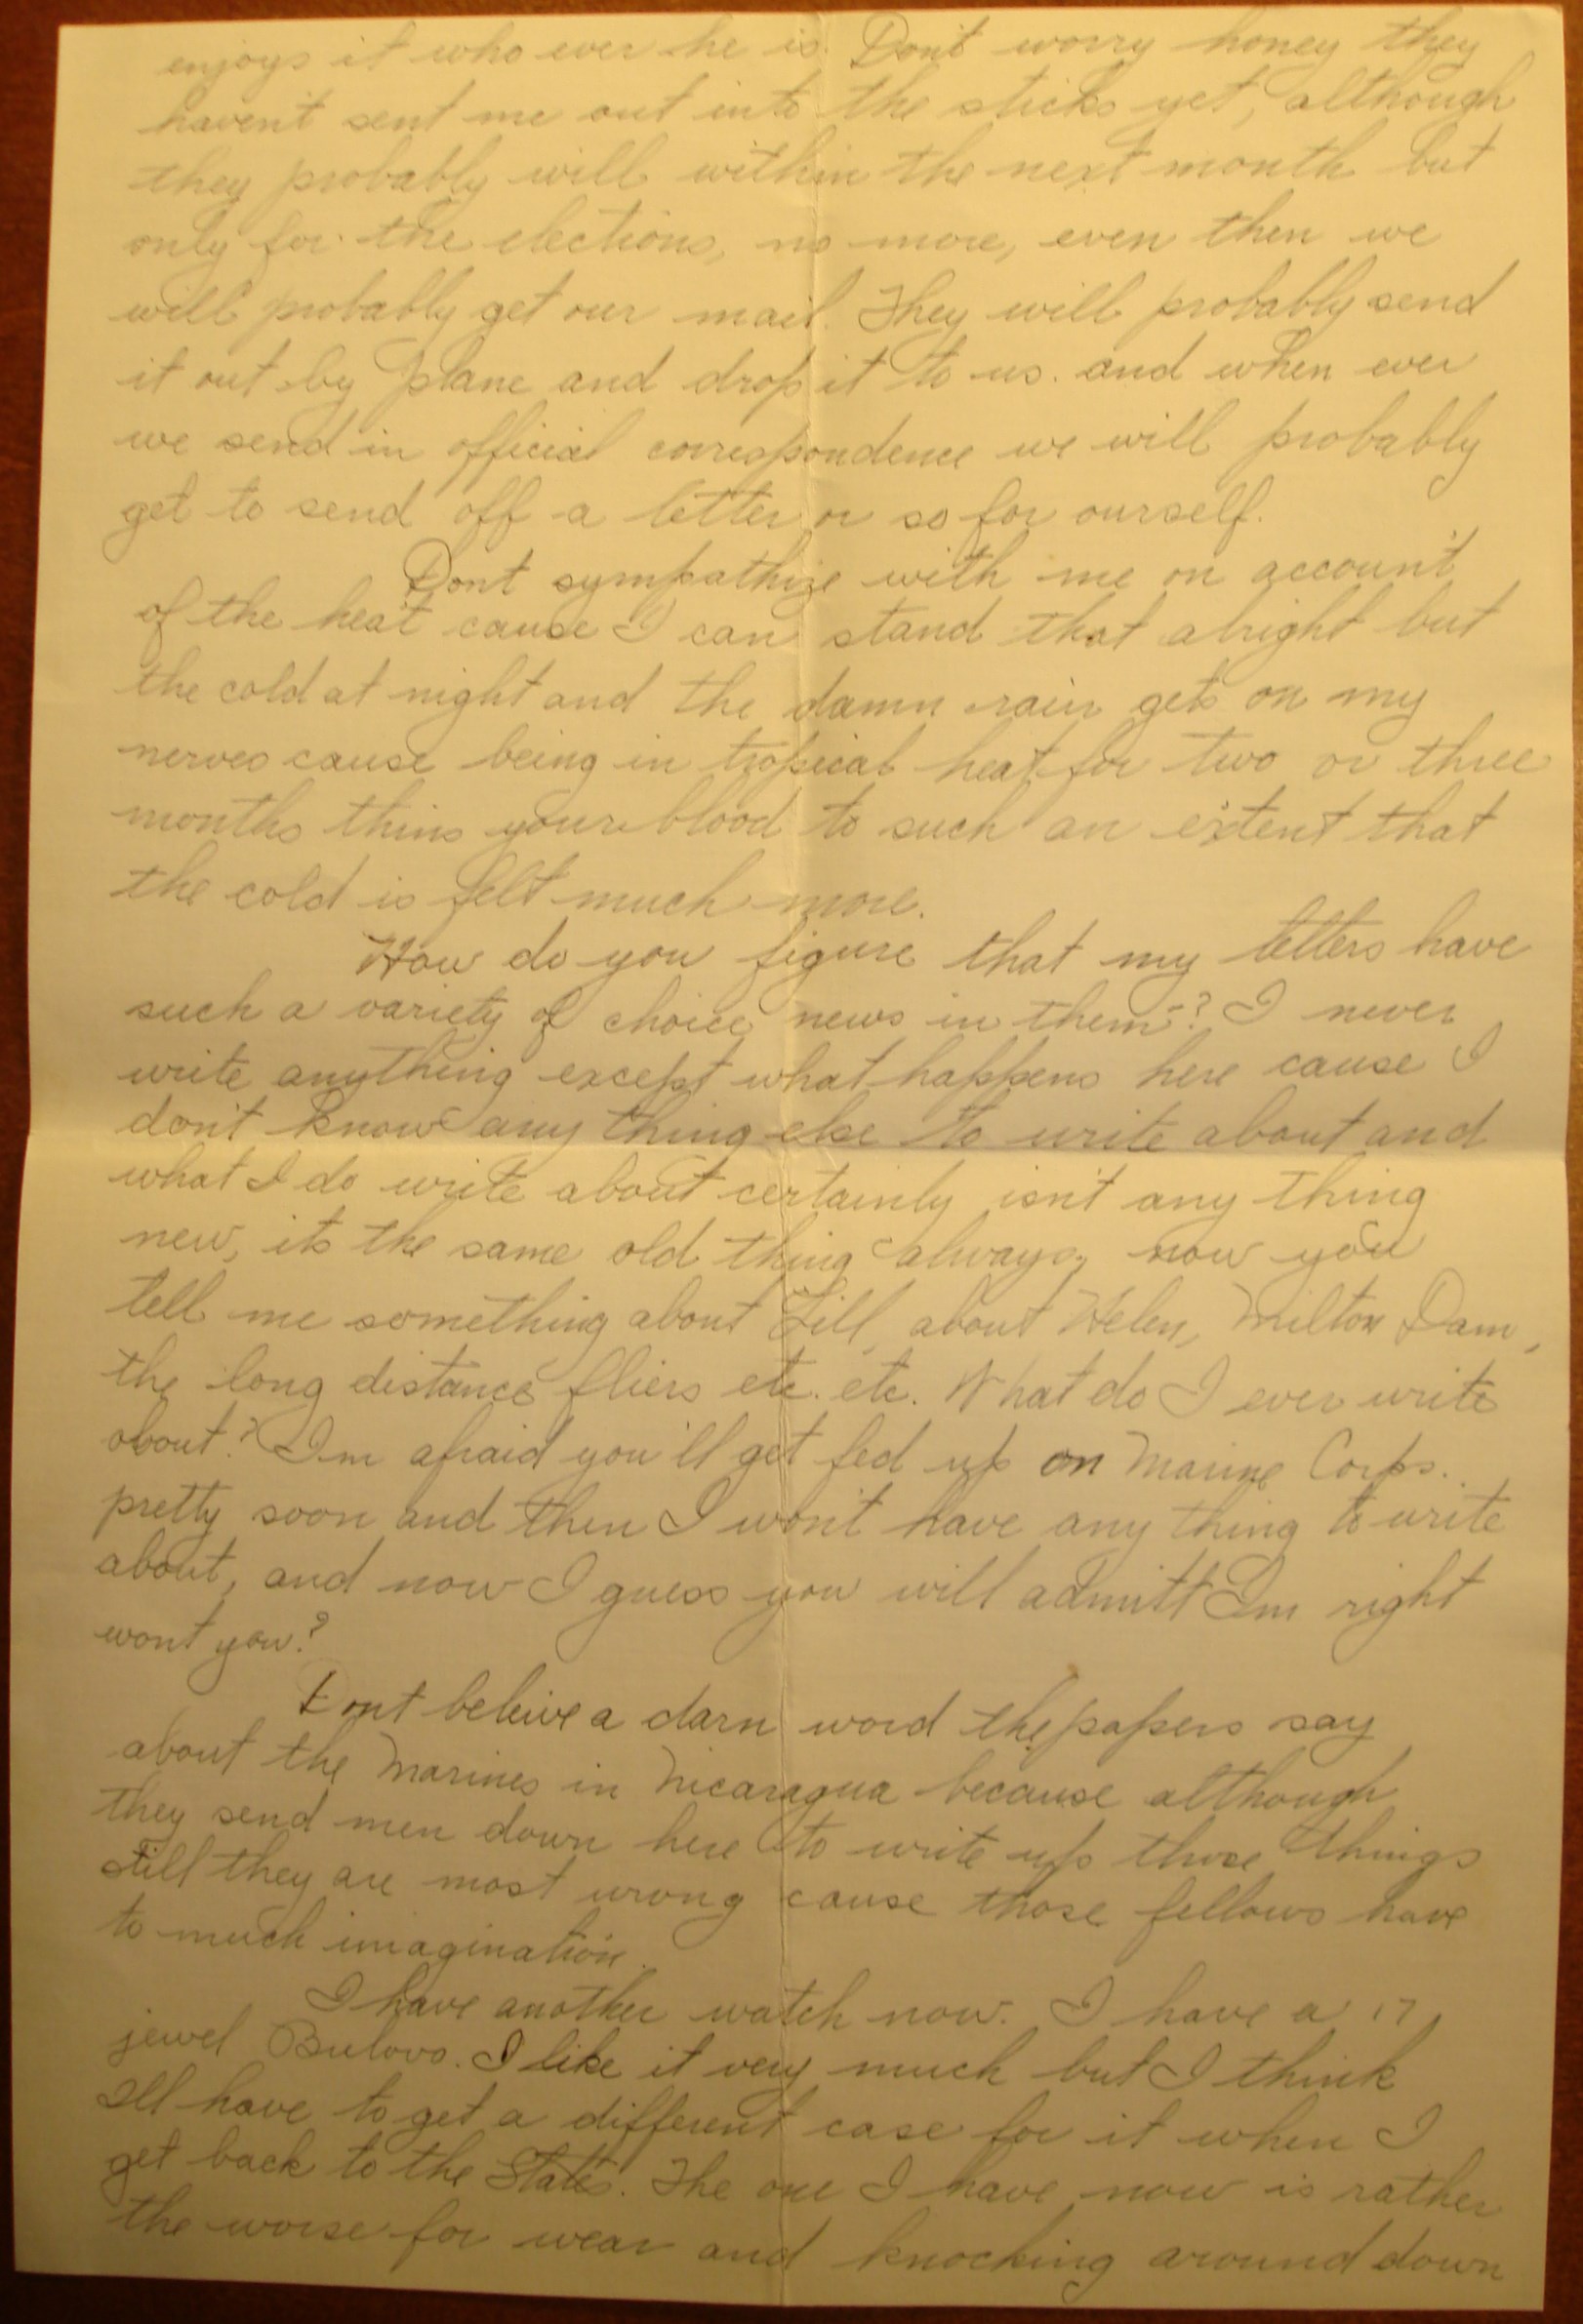 enjoys it who ever he is. Don't worry honey they
haven't sent me out into the sticks yet, although
they probably will within the next month but
only for the elections, no more, even then we
will probably get our mail. They will probably send
it out by plane and drop it to us. and when ever
we send in official correspondence we will probably
get to send off a letter or so for ourself.
Dont sympathize with me on account
of the heat cause I can stand that alright but
the cold at night and the damn rain gets on my
nerves cause being in tropical heat for two or three
months thins your blood to such an extent that
the cold is felt much more.
How do you figure that my letters have
such a variety of choice news in them? I never
write anything except what happens here cause I
don't know any thing else to write about and
what I do write about certainly isn't any thing
new, its the same old thing always, now you
tell me something about Lill, about Helen, Milton Dam,
the long distance fliers etc. etc. What do I ever write
about? Im afraid you'll get fed up on Marine Corps.
pretty soon and then I won't have any thing to write
about, and now I guess you will admitt Im right
wont you?
Dont beleive a darn word the papers say
about the Marines in Nicaragua because although
they send men down here to write up those things
still they are most wrong cause those fellows have
to much imagination.
I have another watch now. I have a 17
jewel Bulova. I like it very much but I think
Ill have to get a different case for it when I
get back to the States. The one I have now is rather
the worse for wear and knocking around down